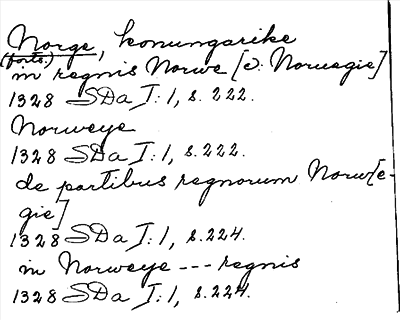 Norge, konungarike
(forts.)
in regnis Norwe [ɔ: Noruegie]
1328 SDa I:1, s. 222.
Norweye
1328 SDa I:1, s. 222.
de partibus regnorum Norw[e-
gie]
1328 SDa I:1, s. 224.
in Norweye --- regnis
1328 SDa I:1, s. 224.